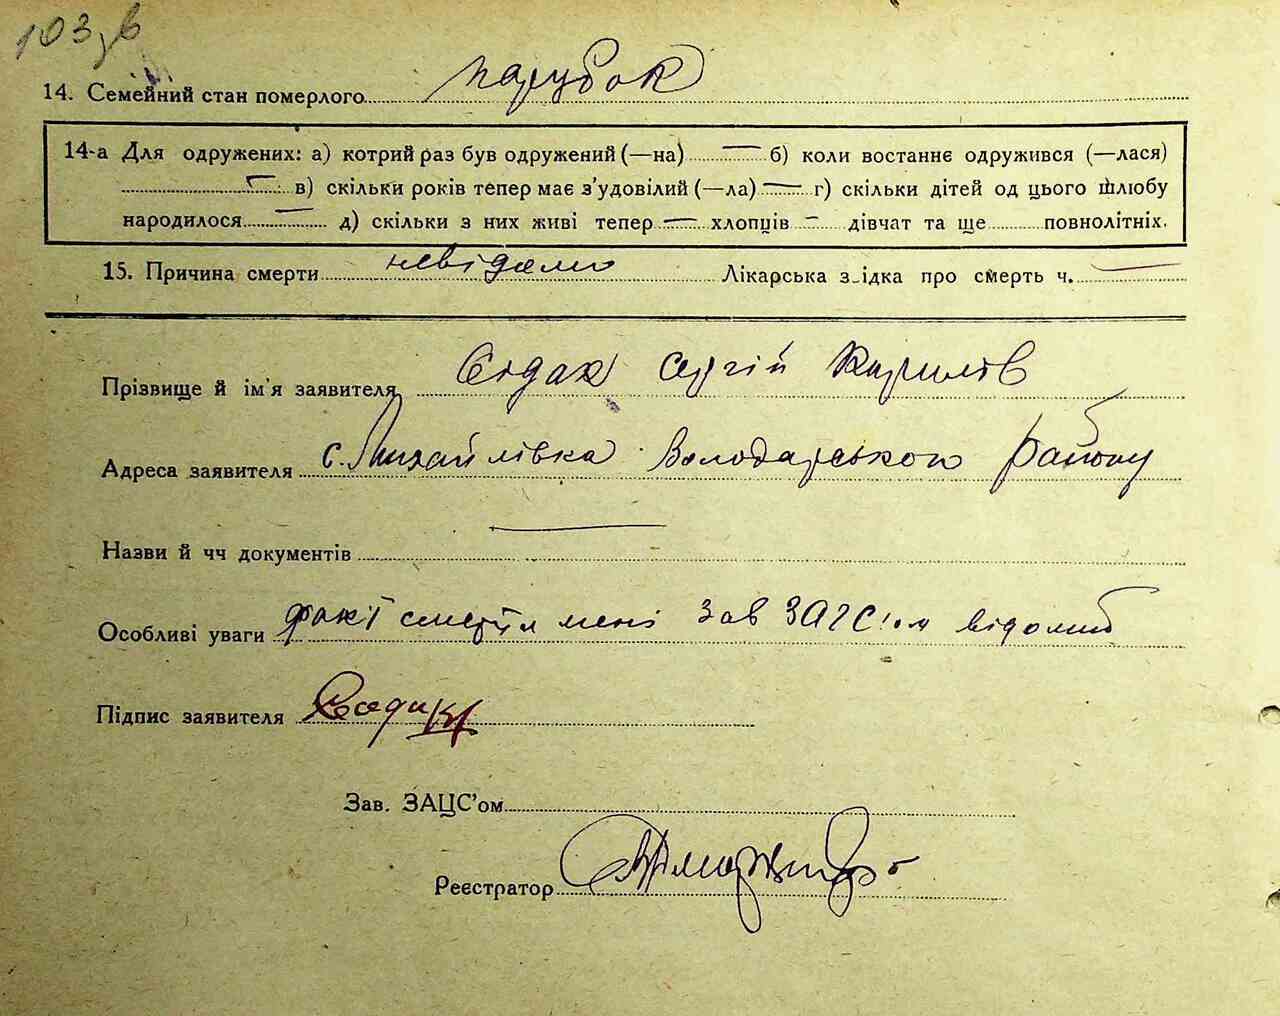 103 зв
14. Семейний стан померлого парубок
14-а Для одружених: а) котрий раз був одружений (—на) — б) коли востаннє одружився (—лася)
— в) скільки років тепер має з'удовілий (—ла) — г) скільки дітей од цього шлюбу
народилося — д) скільки з них живі тепер — хлопців — дівчат та ще повнолітніх.
15. Причина смерти невідомо Лікарська з_ідка про смерть ч. —
Прізвище й ім'я заявителя Сідак Сергій Кирилів
Адреса заявителя с. Михайлівка Володарського району
Назви й чч документів —
Особливі уваги факт смерти мені Зав ЗАГС'ом відомий
Підпис заявителя
Зав. ЗАЦС'ом
Реєстратор